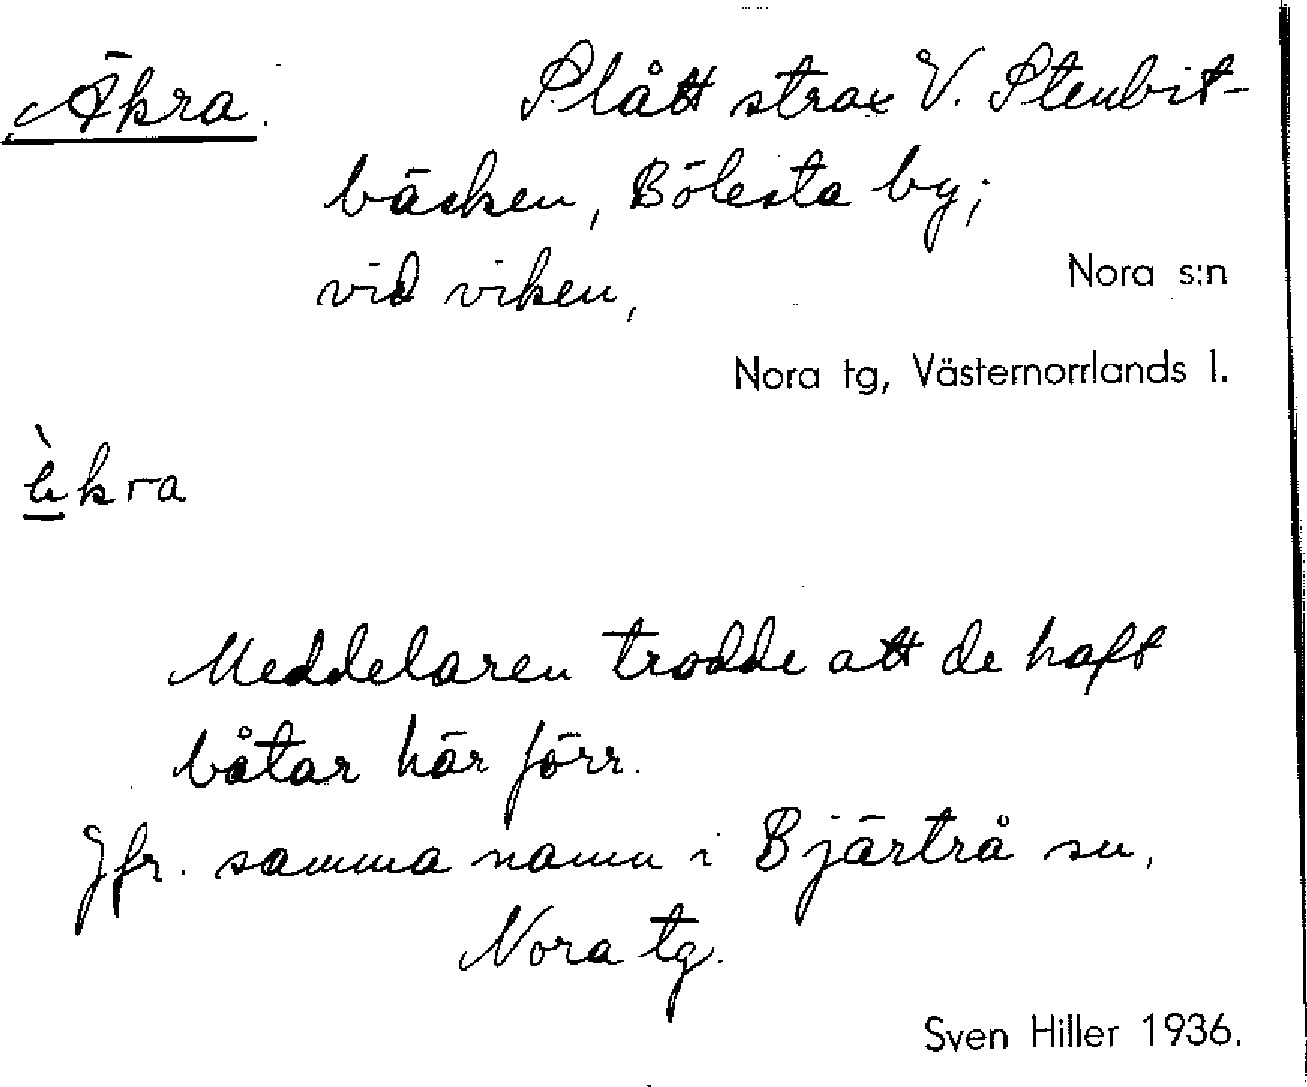 Äkra. Slått strax V. Stenbit-
bäcken, Bölesta by;
vid viken,
Nora s:n
Nora tg, Västernorrlands l.
è̱kra
Meddelaren trodde att de haft
båtar här förr.
Jfr. samma namn i Bjärtrå sn,
Nora tg.
Sven Hiller 1936.